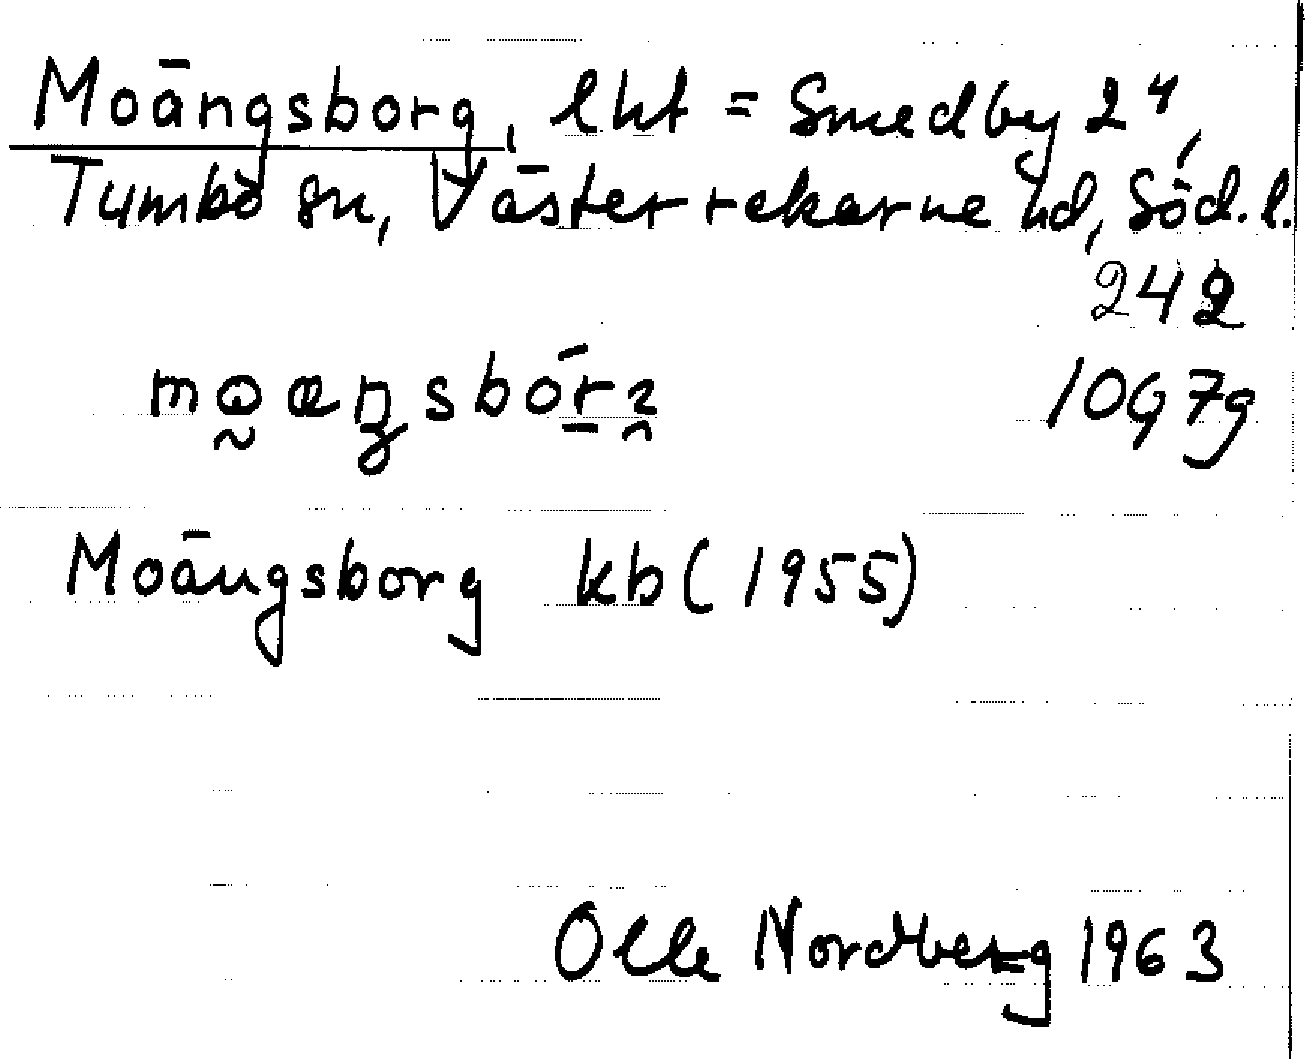 Moängsborg, lht = Smedby 2⁴,
Tumbo sn, Västerrekarne hd, Söd. l.
242
10G 7g
Moängsborg kb (1955)
Olle Nordberg 1963